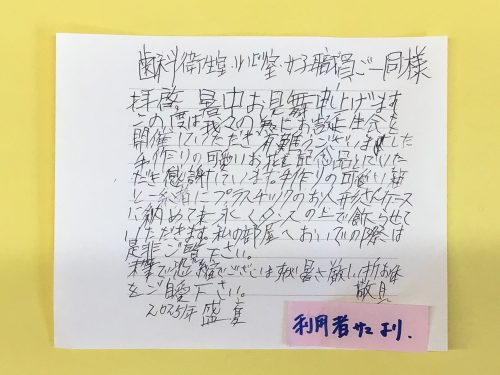 歯科衛生室 女子職員ご一同様
拝啓、暑中お見舞申し上げます
この度は我々の為にお誕生会を
開催していただき有難うございました
手作りの可愛いお花記念品としていた
だき感謝しています。手作りの可愛い箱
と一緒にプラスチックのお人形さんケース
に納めて末永くタンスの上で飾らせて
いただきます。私の部屋へおいでの際は
是非ご覧下さい。
末筆で恐縮でございますが暑さ厳しい折お体
をご自愛下さい。 敬具
2025年 盛夏
利用者サマより.